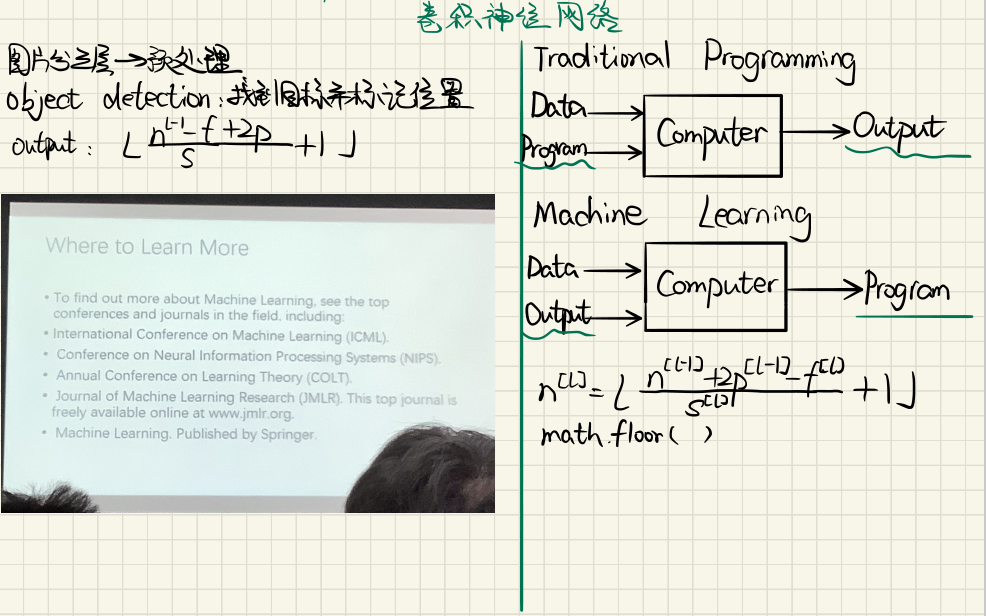 卷积神经网络
图片分类层→预处理
object detection：找到目标并标记位置
output： ⌊ n^{l-1}-f+2p / s +1 ⌋
Where to Learn More
• To find out more about Machine Learning, see the top
conferences and journals in the field, including:
• International Conference on Machine Learning (ICML).
• Conference on Neural Information Processing Systems (NIPS).
• Annual Conference on Learning Theory (COLT).
• Journal of Machine Learning Research (JMLR). This top journal is
freely available online at www.jmlr.org.
• Machine Learning. Published by Springer.
Traditional Programming
Data
Program
Computer
Output
Machine Learning
Data
Output
Computer
Program
n^{[l]} = ⌊ n^{[l-1]}+2p^{[l-1]}-f^{[l]} / s^{[l]} +1 ⌋
math.floor( )